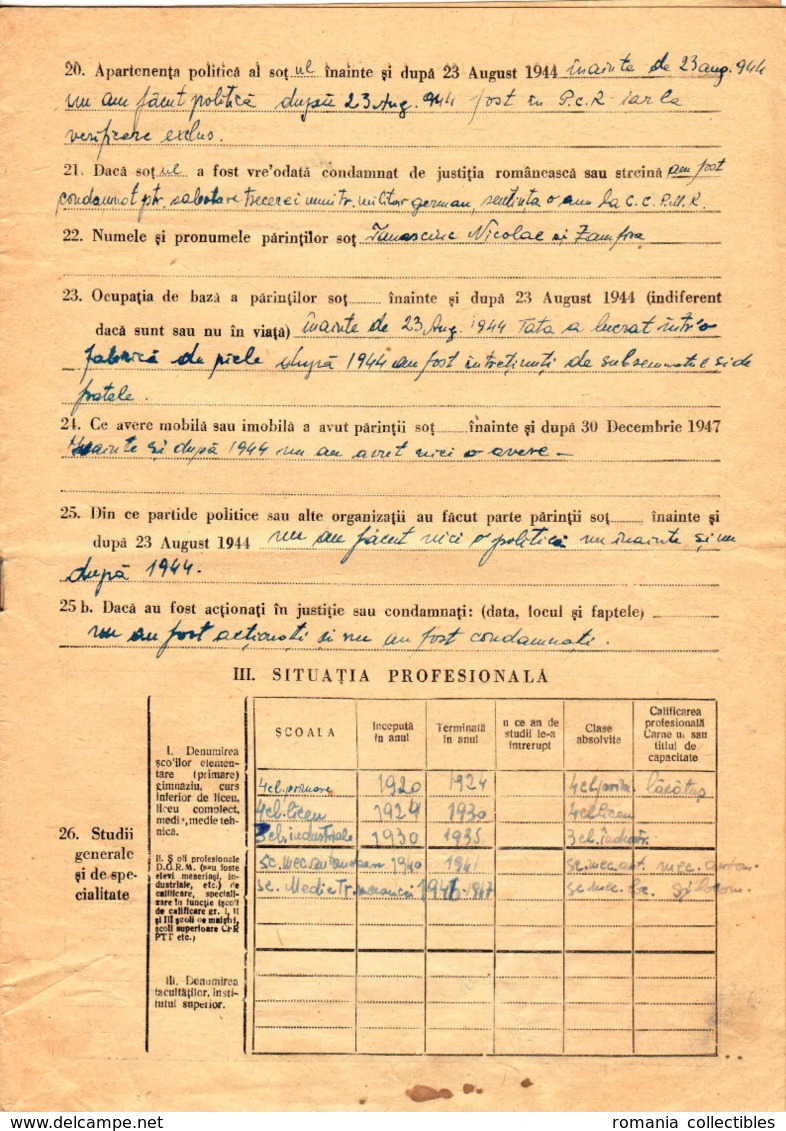 20. Apartenența politică al soț ul înainte și după 23 August 1944 înainte de 23 aug. 944
nu am făcut politică după 23 Aug. 944 fost în P.C.R iar la
verificare exclus.
21. Dacă soț ul a fost vre'odată condamnat de justiția românească sau streină am fost
condamnat ptr. sabotarea trecerei unui tr. militar german, sentința o am la C.C. P.M.R.
22. Numele și pronumele părinților soț Nicolae și Zamfira
23. Ocupația de bază a părinților soț......... înainte și după 23 August 1944 (indiferent
dacă sunt sau nu în viață) înainte de 23 Aug. 1944 Tata a lucrat într'o
fabrică de piele după 1944 au fost întreținuți de subsemnatul și de
fratele.
24. Ce avere mobilă sau imobilă a avut părinții soț......... înainte și după 30 Decembrie 1947
Înainte și după 1944 nu au avut nici o avere –
25. Din ce partide politice sau alte organizații au făcut parte părinții soț......... înainte și
după 23 August 1944 nu au făcut nici o politică nu înainte și nu
după 1944.
25 b. Dacă au fost acționați în justiție sau condamnați: (data, locul și faptele)
nu au fost acționați și nu au fost condamnați.
III. SITUAȚIA PROFESIONALĂ
26. Studii
generale
și de spe-
cialitate
I. Denumirea
șco'ilor elemen-
tare (primare)
gimnaziu, curs
inferior de liceu,
liceu complect,
medi', medie teh-
nica.
II. Școli profesionale
D.G.R.M. (sau foste
elevi meseriași, in-
dustriale, etc.) de
calificare, speciali-
zare în funcție (școli
de calificare gr. I, II
și III școli de maiștri,
școli superioare CFR
PTT etc.)
III. Denumirea
facultăților, insti-
tutul superior.
ȘCOALA
Începută în anul
Terminată în anul
n ce an de studii le-a întrerupt
Clase absolvite
Calificarea profesională Carne u sau titlul de capacitate
4 cl. primare 1920 1924 4 cl. prim. lăcătuș
4 cl. liceu 1924 1930 4 cl. liceu
3 cl. industriale 1930 1935 3 cl. industr.
sc. mec. 1940 1941 sc. mec. aut. mec. autom.
sc. Medie Tr. 1946 947 sc. mec. și locom.
romania collectibles